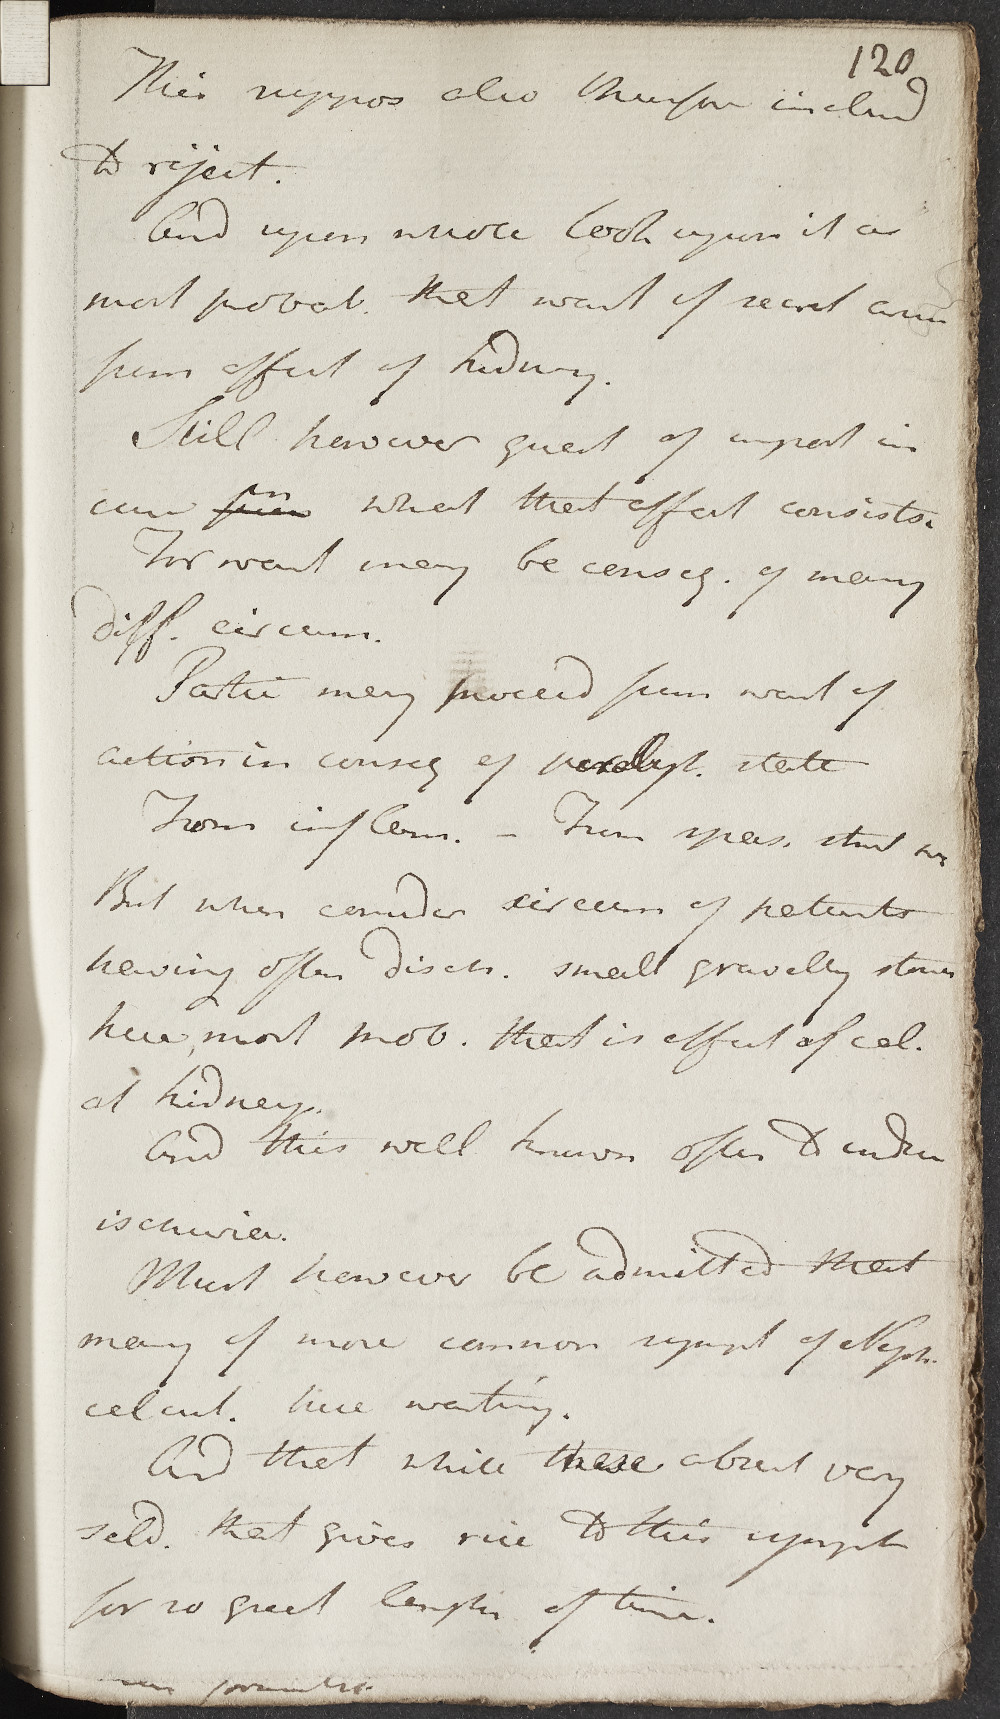 120
This suppos also therefore inclind
to reject.
And upon whole look upon it as
most probab. that want of secret arises
from affect of kidney.
Still however quest of import in
what that affect consists.
For want may be conseq. of many
diff. circum.
Partic may proceed from want of
action in conseq of paralyt. state
From inflam. - From spas. strict
But when consider circum of patients
having often disch. small gravelly stones
here most prob. that is effect of cal.
at kidney.
And this well known often to induce
ischuria.
Must however be admitted that
many of more common sympt of Neph.
calcul. here wanting.
And that while these absent very
seld. that gives rise to this sympt
for so great length of time.